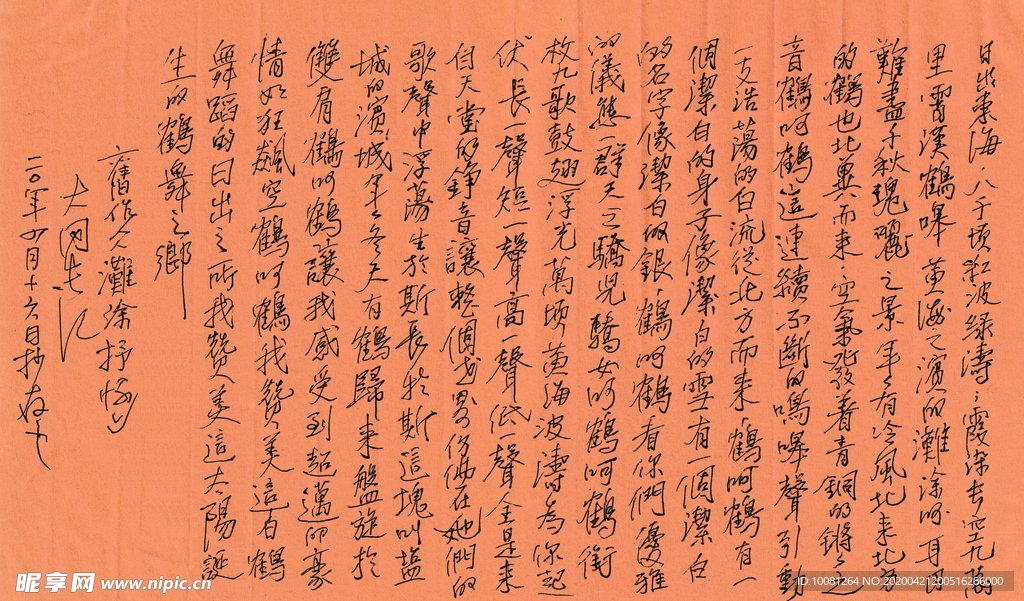 日出東海八千頃紅波綠濤霞染長空九萬
里雷漢鶴嗥黃海之濱的灘涂呵耳目
難盡千秋瑰麗之景年年有冷風北來北方
的鶴也北冀而來空氣散着青銅的鏘之
音鶴呵鶴這連續不斷的鳴嗥聲引動
一支浩蕩的白流從北方而來鶴呵鶴有一
個潔白的身子像潔白的雪有一個潔白
的名字像潔白的銀鶴呵鶴看你們優雅
的儀態一群天之驕兒驕女呵鶴呵鶴銜
枚九歌鼓翅浮光萬頃黃海波濤為你記
伏長一聲短一聲高一聲低一聲全是來
自天堂的錚音讓整個世界仿佛在她們的
歌聲中浮蕩生於斯長於斯這塊叫鹽
城的濱城年年冬天有鶴歸來盤旋於
雙肩鶴呵鶴讓我感受到超邁的豪
情如狂飆空鶴呵鶴我贊美這白鶴
舞蹈的日出之所我贊美這太陽誕
生的鶴舞之鄉
舊作人灘涂抒懷
大岡
二〇年四月十六日抄
昵享网 www.nipic.cn
ID:10081264 NO:20200421200516286000